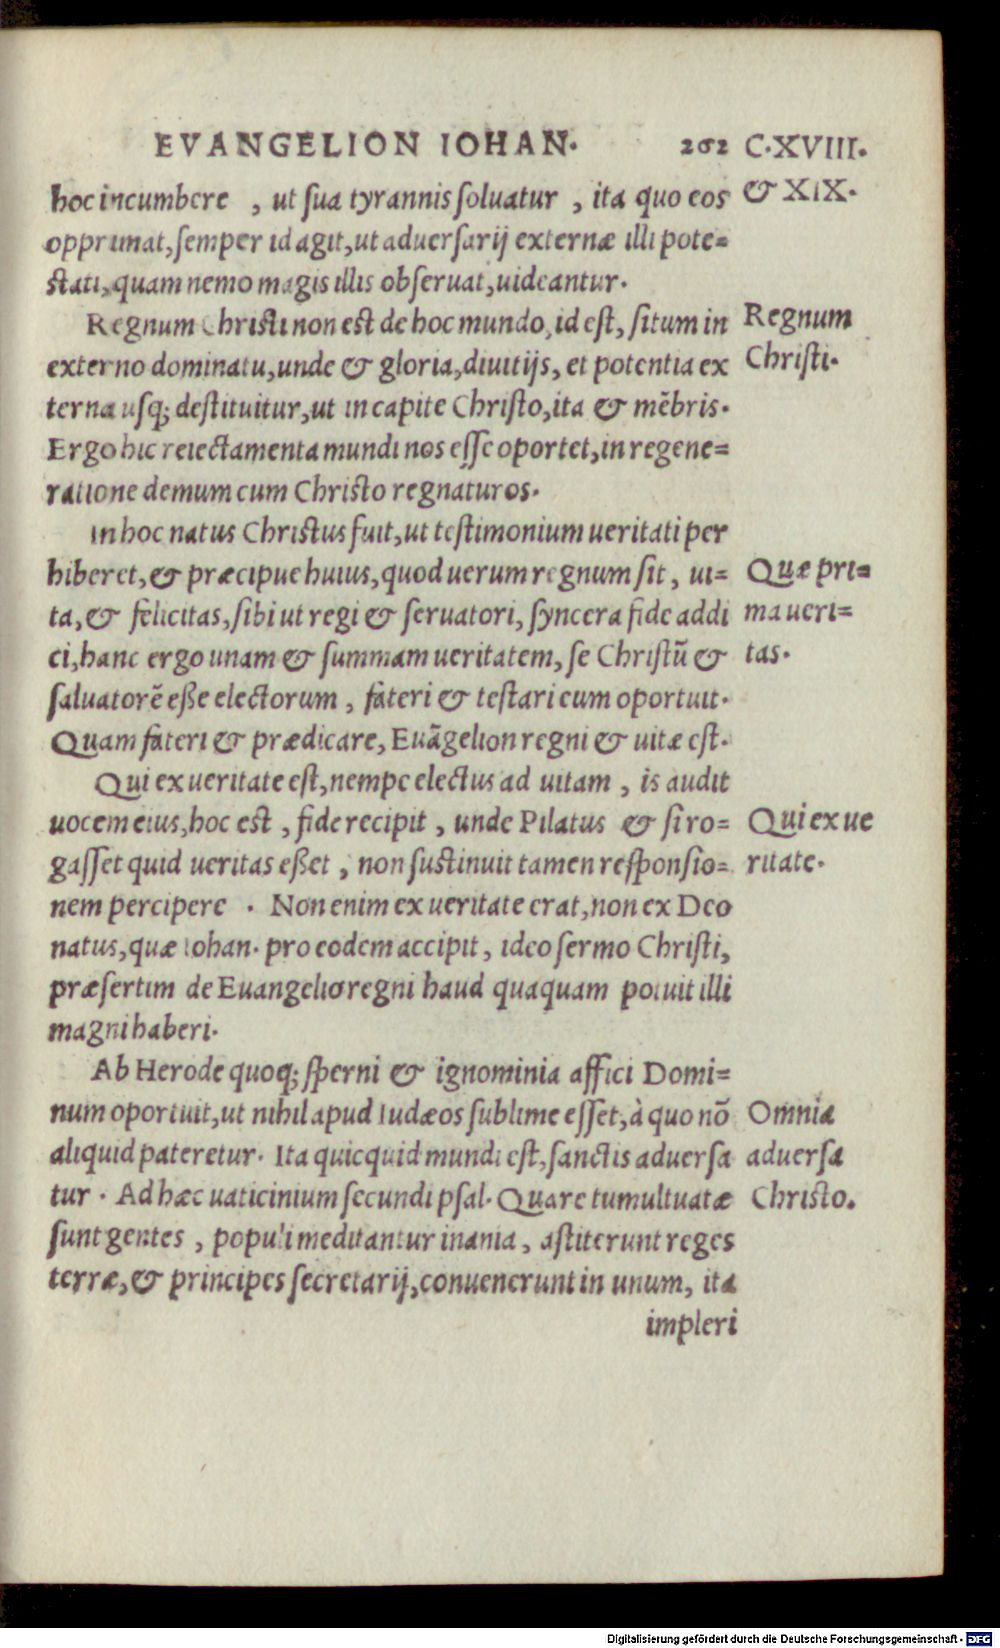 EVANGELION IOHAN. 262 C.XVIII.
& XIX.
hoc incumbere , ut sua tyrannis soluatur , ita quo eos
opprimat, semper id agit, ut aduersarij externæ illi pote=
stati, quam nemo magis illis obseruat, uideantur.
Regnum Christi non est de hoc mundo, id est, situm in
externo dominatu, unde & gloria, diuitijs, et potentia ex
terna usq; destituitur, ut in capite Christo, ita & mẽbris.
Ergo hic reiectamenta mundi nos esse oportet, in regene=
ratione demum cum Christo regnaturos.
Regnum
Christi.
In hoc natus Christus fuit, ut testimonium ueritati per
hiberet, & præcipue huius, quod uerum regnum sit, ui=
ta, & felicitas, sibi ut regi & seruatori, syncera fide addi
ci, hanc ergo unam & summam ueritatem, se Christũ &
saluatorẽ eße electorum , fateri & testari eum oportuit.
Quam fateri & prædicare, Euãgelion regni & uitæ est.
Quæ pri=
ma ueri=
tas.
Qui ex ueritate est, nempe electus ad uitam , is audit
uocem eius, hoc est , fide recipit , unde Pilatus & si ro=
gasset quid ueritas eßet , non sustinuit tamen responsio=
nem percipere . Non enim ex ueritate erat, non ex Deo
natus, quæ Iohan. pro eodem accipit, ideo sermo Christi,
præsertim de Euangelio regni haud quaquam potuit illi
magni haberi.
Qui ex ue
ritate.
Ab Herode quoq; sperni & ignominia affici Domi=
num oportuit, ut nihil apud Iudæos sublime esset, à quo nõ
aliquid pateretur. Ita quicquid mundi est, sanctis aduersa
tur . Ad hæc uaticinium secundi psal. Quare tumultuatæ
sunt gentes , populi meditantur inania , astiterunt reges
terræ, & principes secretarij, conuenerunt in unum, ita
impleri
Omnia
aduersa
Christo.
Digitalisierung gefördert durch die Deutsche Forschungsgemeinschaft - DFG